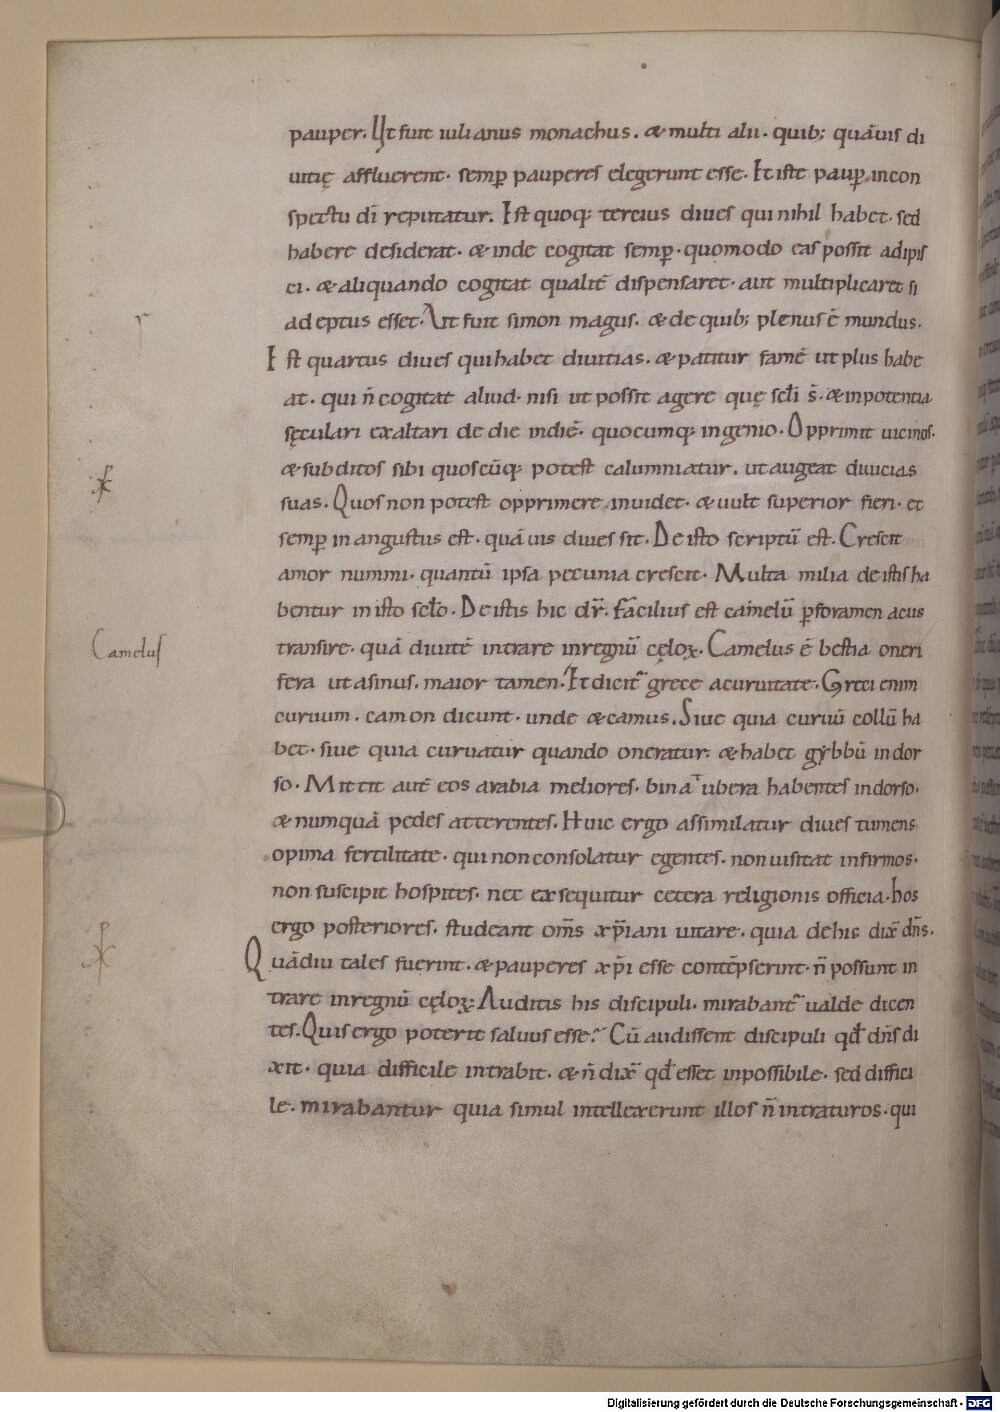 pauper. Ut fuit iulianus monachus. & multi alii. quib; quāuis di
uitię affluerent. semp pauperes elegerunt esse. Et iste paup incon
spectu dī reputatur. Est quoq; tercius diues qui nihil habet. sed
habere desiderat. & inde cogitat semp. quomodo eas possit adipis
ci. & aliquando cogitat qualit̄ dispensaret. aut multiplicaret si
adeptus esset. Ut fuit simon magus. & de quib; plenus ē mundus.
Est quartus diues qui habet diuitias. & patitur famē ut plus habe
at. qui n̄ cogitat aliud. nisi ut possit agere quę sclī s̄. & in potentia
sęculari exaltari de die in diē. quocumq; ingenio. Opprimit uicinos.
& subditos sibi quoscūq; potest calumniatur. ut augeat diuicias
suas. Quos non potest opprimere inuidet. & uult superior fieri. et
semp in angustus est. quā uis diues sit. De isto scriptū est. Crescit
amor nummi. quantū ipsa pecunia crescit. Multa milia de istis ha
bentur in isto scl̄o. De istis hic dr̄. Facilius est camelū p foramen acus
transire. quā diuitē intrare in regnū cęloꝝ. Camelus ē bestia oneri
fera ut asinus. maior tamen. Et dicit̄ grece acuruitate. Greci enim
curuum. camon dicunt. unde & camus. Siue quia curuū collū ha
bet. siue quia curuatur quando oneratur. & habet gybbū in dor
so. Mittit autē eos arabia meliores. bina ubera habentes in dorso.
& numquā pedes atterentes. Huic ergo assimilatur diues tumens
opima fertilitate. qui non consolatur egentes. non uisitat infirmos.
non suscipit hospites. nec exsequitur cetera religionis officia. hos
ergo posteriores. studeant om̄s xp̄iani uitare. quia de his dix̄ dn̄s.
Quādiu tales fuerint. & pauperes xp̄i esse contēpserint. n̄ possunt in
trare in regnū cęloꝝ. Auditis his discipuli. mirabant̄ ualde dicen
tes. Quis ergo poterit saluus esse? Cū audissent discipuli qđ dn̄s di
xit. quia difficile intrabit. & n̄ dix̄ qđ esset inpossibile. sed diffici
le. mirabantur quia simul intellexerunt illos n̄ intraturos. qui
r
Camelus
Digitalisierung gefördert durch die Deutsche Forschungsgemeinschaft - DFG